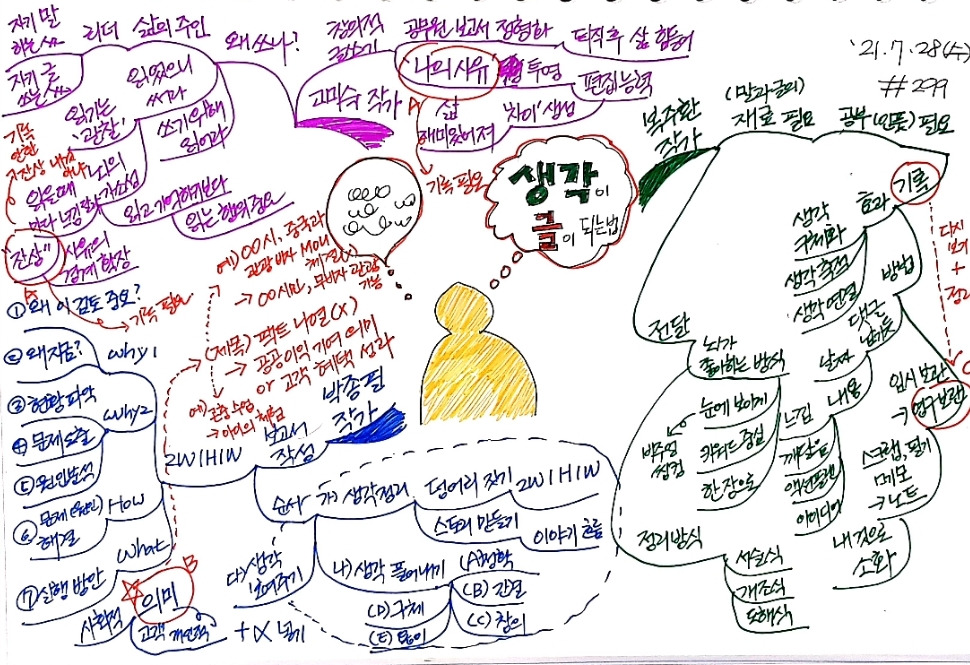 '21. 7. 28(수)
#299
생각이
글이 되는 법
고미숙 작가
왜 쓰나?
삶의 주인
리더
자기 말
자기 글
쓰는
읽었으니
써라
쓰기 위해
읽어라
읽기는
'관찰'
나의
읽을 때
마다 느낌
읽고 기억하기보다
읽는 행위 중요
기록
안 한
"잔상"
사유의
경계 확장
기록 필요
창의적
글쓰기
공무원 보고서 정형화
퇴직 후 삶 힘들어
'나의 사유'
투영
편집능력
삶
'차이' 생성
A
기록 필요
복주환
작가
(말과 글의)
재료 필요
공부(인풋) 필요
기록
효과
생각
구체화
생각 축적
생각 연결
방법
댓글
남기듯
날짜
내용
느낌
깨달음
액션플랜
아이디어
다시
보기
+
정리
임시 보관
→ 영구 보관
C
스크랩, 필기
메모
→ 노트
내 것으로
소화
전달
뇌가
좋아하는 방식
눈에 보이게
비주얼
씽킹
키워드 중심
한 장으로
정리 방식
서술식
개조식
도해식
박종필
작가
보고서
작성
2W1H1W
Why1
① 왜 이 검토 중요?
② 왜 지금?
Why2
③ 현황 파악
④ 문제 도출
⑤ 원인 분석
How
⑥ 문제(원인)
해결
What
⑦ 실행 방안
의미
B
사회적
고객 개인적
+ α 넣기
예) 00시, 중국과
관광 비자 MOU
체결(X)
→ 00시만, 무비자 관광
가능
(제목) 팩트 나열(X)
→ 공공 이익 기여 의미
or 고객 혜택 성과
예) 곤충 수업
순서
가) 생각 정리
덩어리 짓기
2W1H1W
스토리 만들기
이야기 흐름
나) 생각 풀어내기
(A) 정확
(B) 간결
(C) 창의
(D) 구체
(E) 많이
다) 생각
보여주기